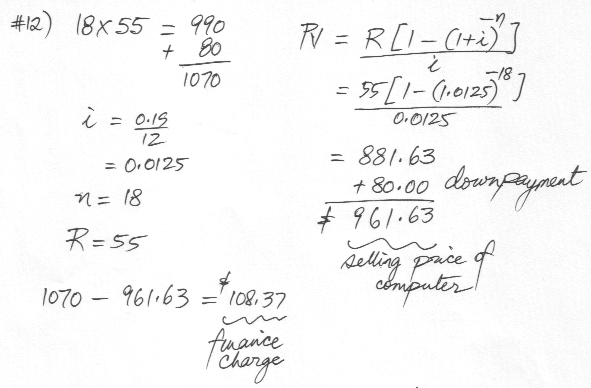 #12) 18 x 55 = 990
+ 80
1070
i = 0.15
12
= 0.0125
n = 18
R = 55
1070 - 961.63 = $108.37
finance
charge
PV = R [1 - (1+i)^-n]
i
= 55 [1 - (1.0125)^-18]
0.0125
= 881.63
+ 80.00 downpayment
$ 961.63
selling price of
computer